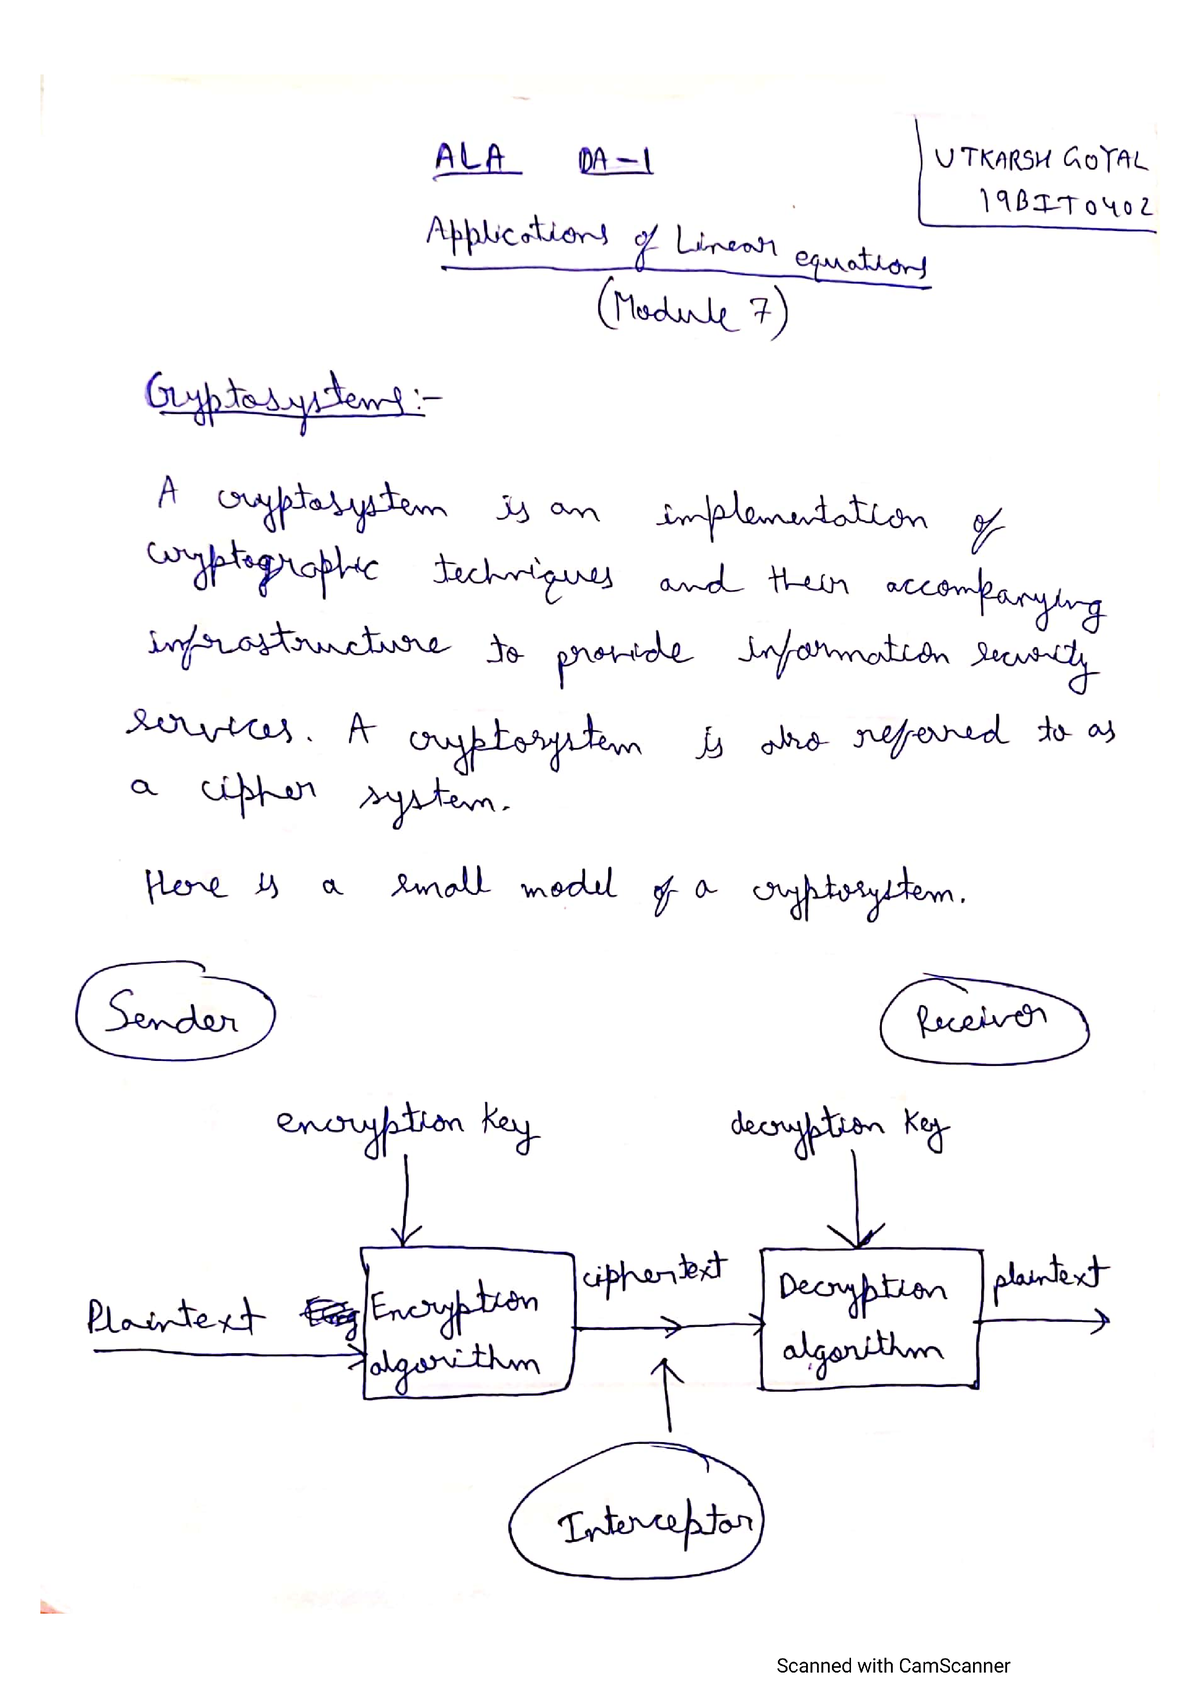 ALA DA-1
UTKARSH GOYAL
19BIT0402
Applications of Linear equations
(Module 7)
Cryptosystems:-
A cryptosystem is an implementation of
cryptographic techniques and their accompanying
infrastructure to provide information security
services. A cryptosystem is also referred to as
a cipher system.
Here is a small model of a cryptosystem.
Sender
Receiver
encryption key
decryption key
Plaintext
Encryption
algorithm
ciphertext
Decryption
algorithm
plaintext
Interceptor
Scanned with CamScanner